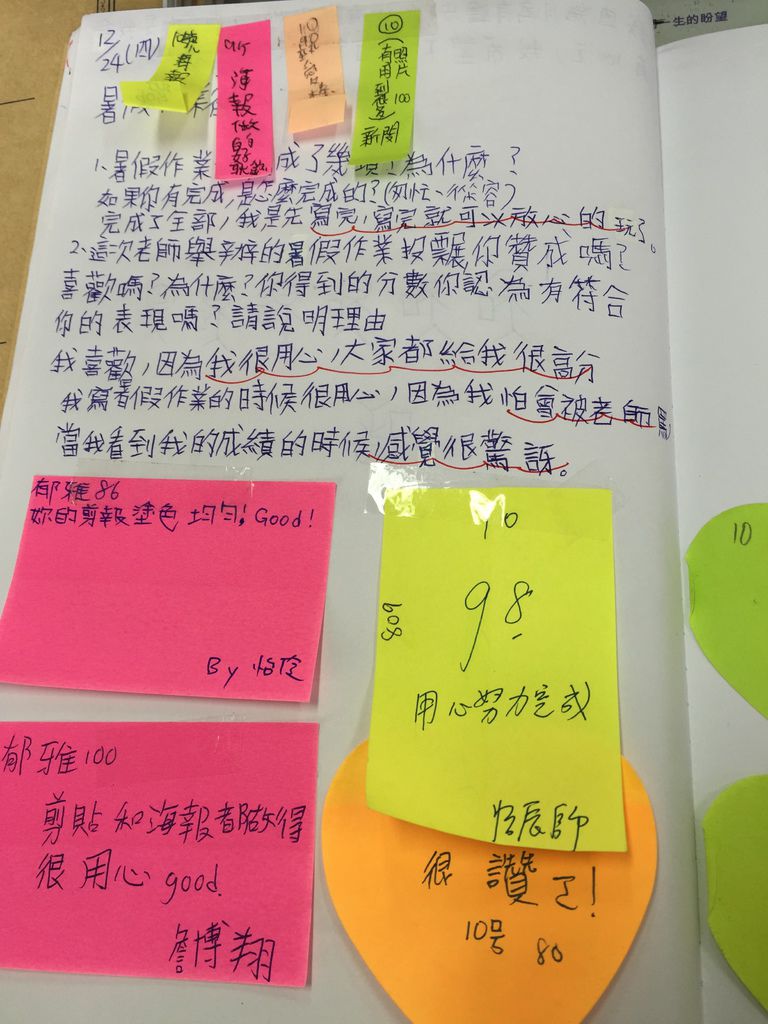 生的盼望
12/24(四)
剪報
海報做的
⑩
⑩
(有用到報紙)
照片
100
新聞
暑假
1、暑假作業 成了幾項?為什麼?
如果你有完成,是怎麼完成的?(匆忙、從容)
完成了全部,我是先寫完,寫完就可以放心的玩了。
2、這次老師舉辦的暑假作業投票你贊成嗎?
喜歡嗎?為什麼?你得到的分數你認為有符合
你的表現嗎?請說明理由
我喜歡,因為我很用心,大家都給我很高分
我寫暑假作業的時候很用心,因為我怕會被老師罵
當我看到我的成績的時候,感覺很驚訝。
郁雅86
妳的剪報塗色均勻!Good!
By 怡伶
10
98
809
用心努力完成
辰師
郁雅100
剪貼和海報都做得
很用心 good.
詹博翔
很讚了!
10号 80
10